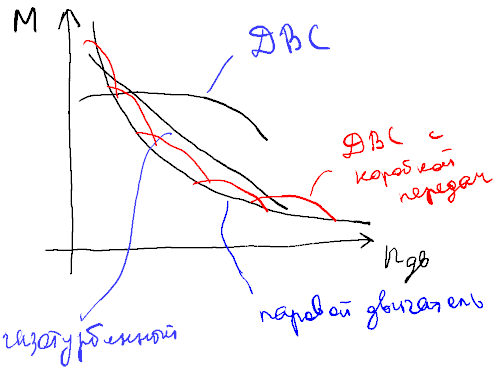 М
ДВС
ДВС с
коробкой
передач
nдв
паровой двигатель
газотурбенный